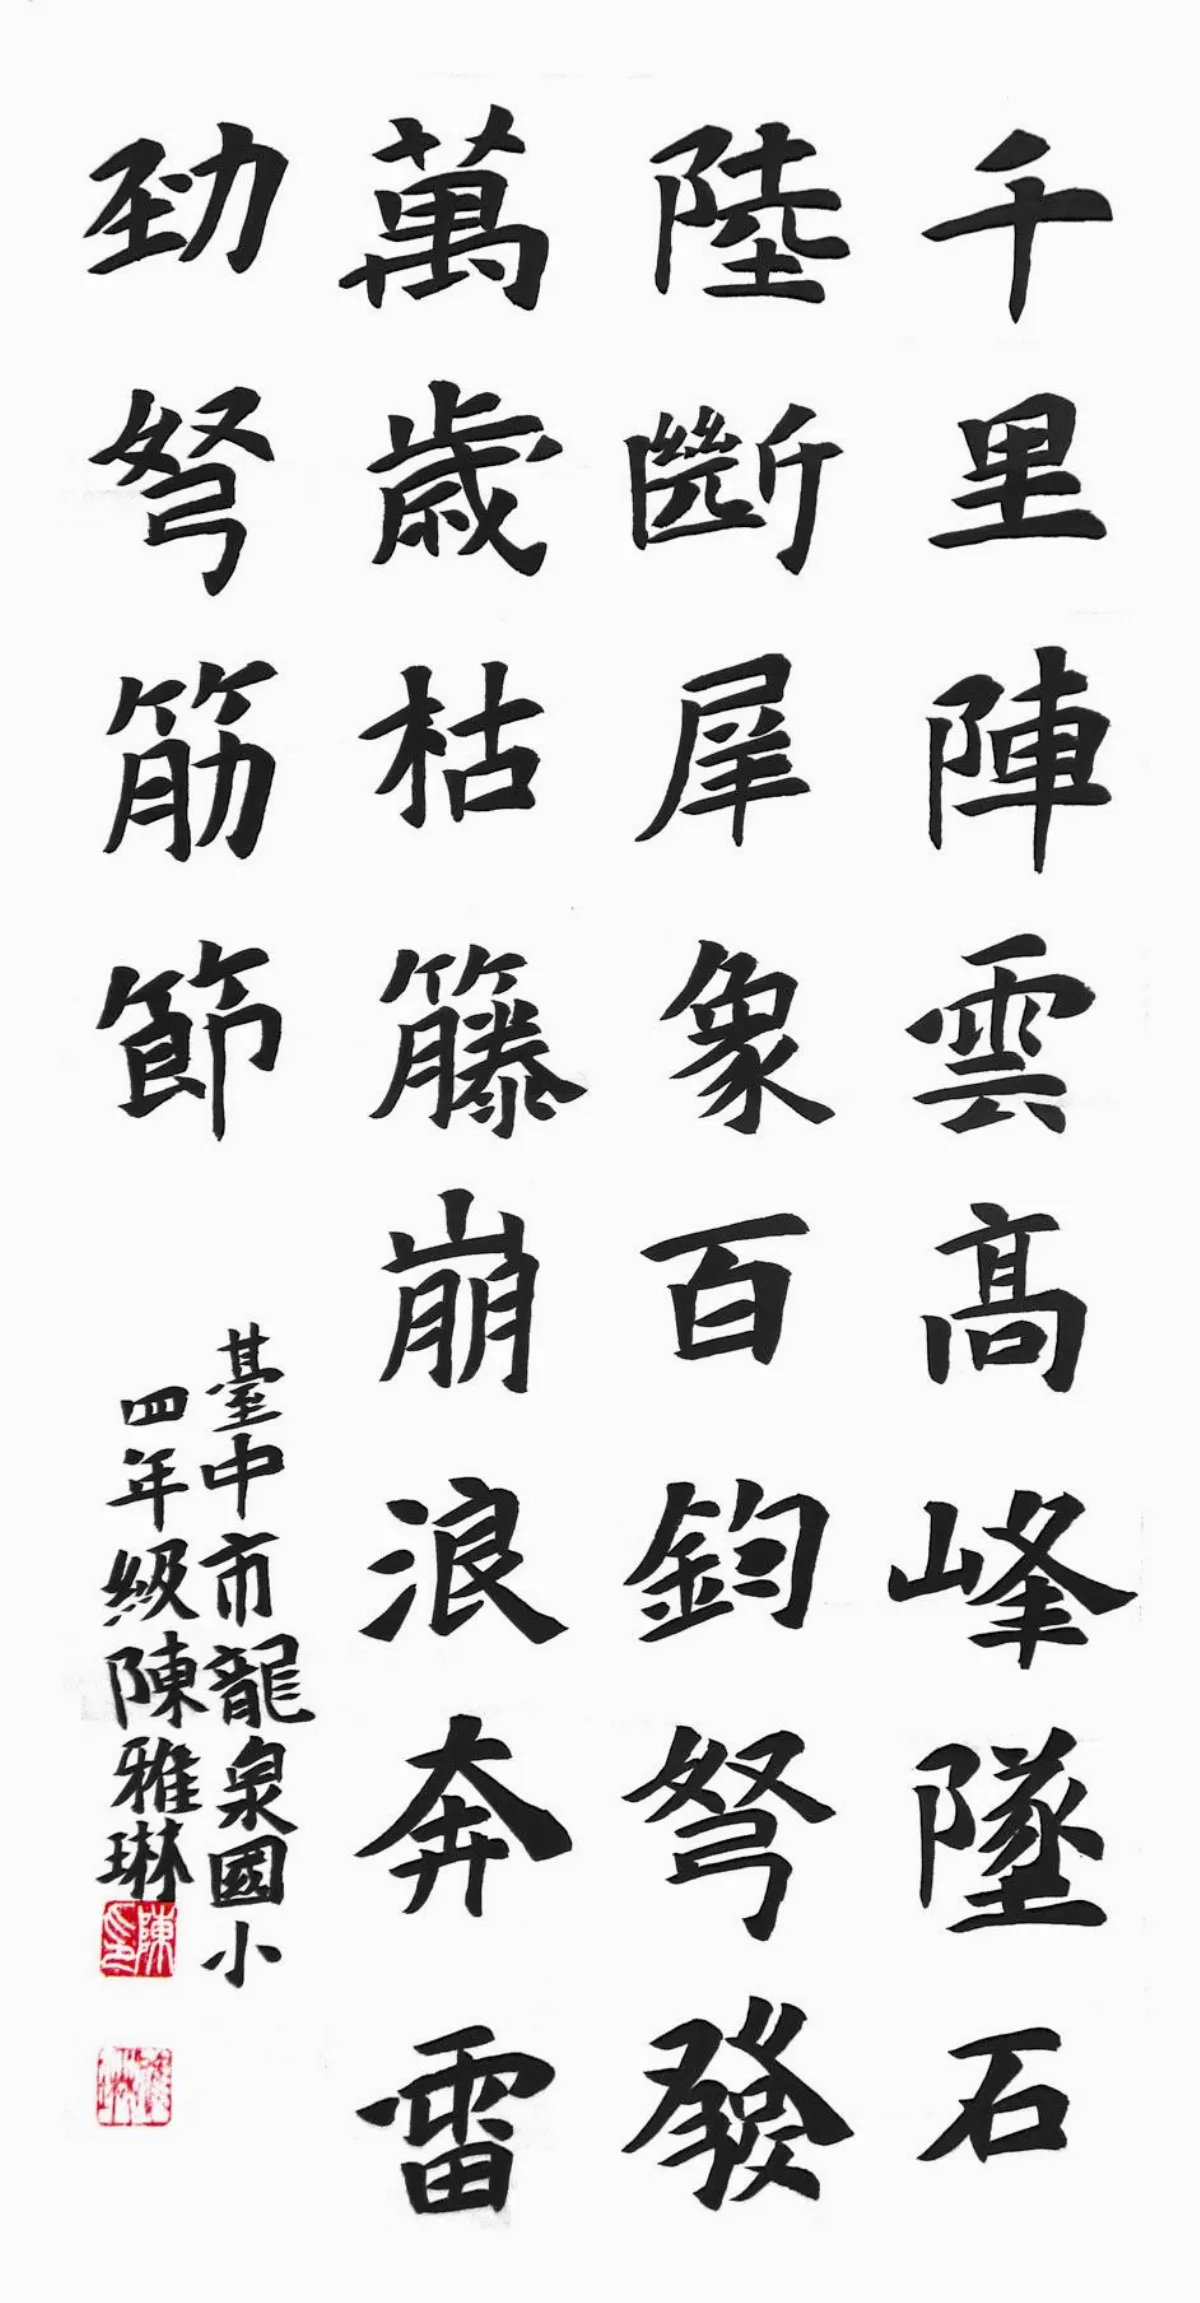 千里陣雲高峰墜石
陸斷犀象百鈞弩發
萬歲枯籐崩浪奔雷
勁弩筋節
臺中市龍泉國小
四年級陳雅琳
陳印
雅琳